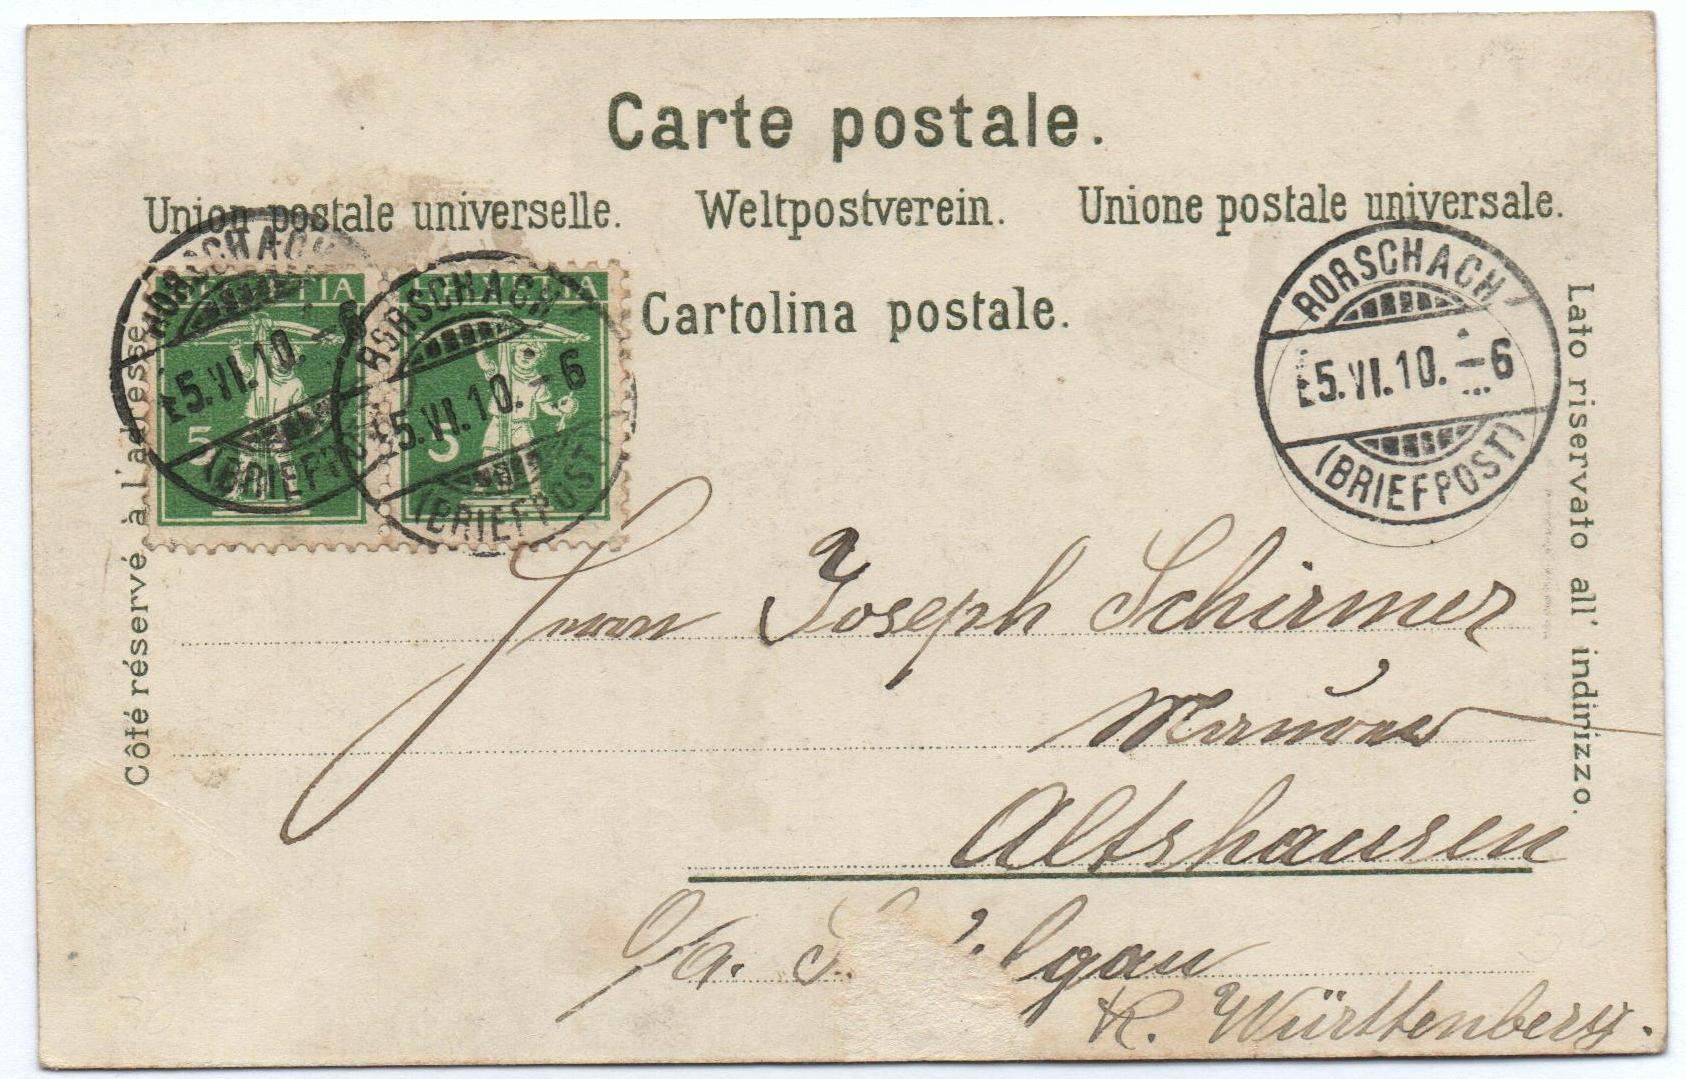 Carte postale.
Union postale universelle. Weltpostverein. Unione postale universale.
Cartolina postale.
Côté réservé à l'adresse
Lato riservato all' indirizzo.
HELVETIA
5
HELVETIA
5
RORSCHACH
5.VI.10.-6
(BRIEFPOST)
RORSCHACH
5.VI.10.-6
(BRIEFPOST)
RORSCHACH
5.VI.10.-6
(BRIEFPOST)
Herrn Joseph Schirmer
Altshausen
O/A. lgau
K. Württenberg.